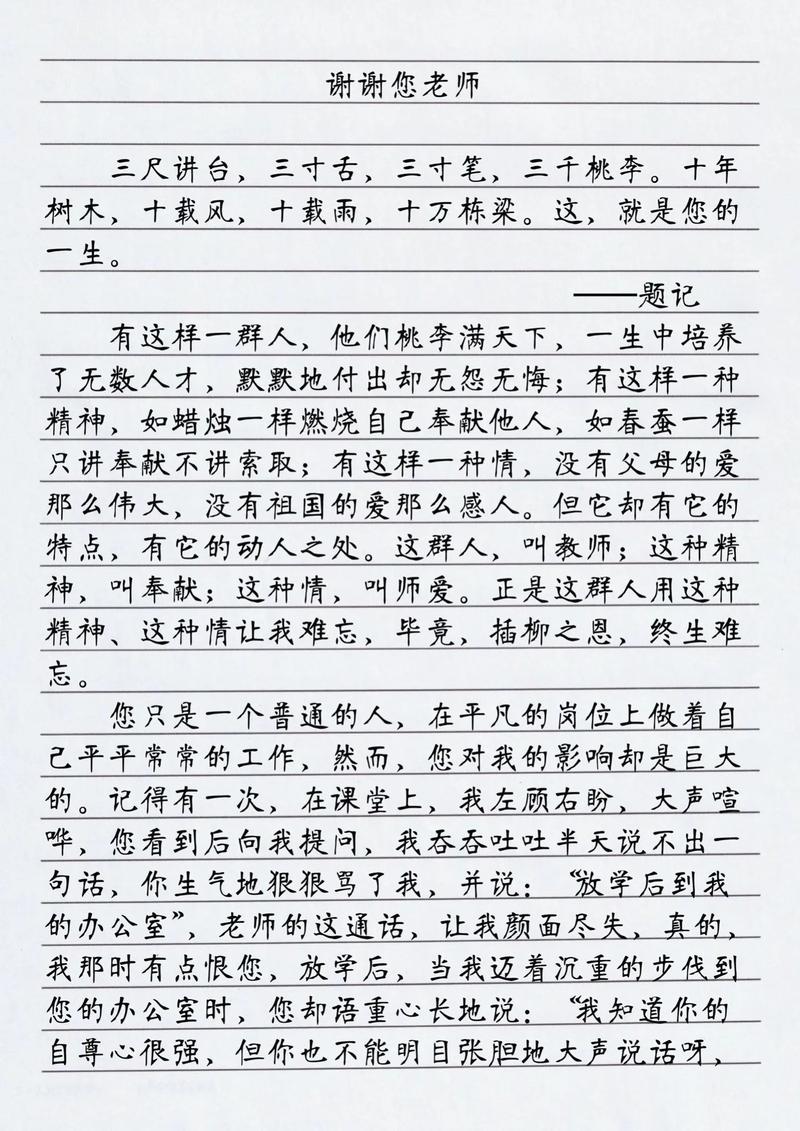 谢谢您老师
三尺讲台，三寸舌，三寸笔，三千桃李。十年
树木，十载风，十载雨，十万栋梁。这，就是您的
一生。
——题记
有这样一群人，他们桃李满天下，一生中培养
了无数人才，默默地付出却无怨无悔；有这样一种
精神，如蜡烛一样燃烧自己奉献他人，如春蚕一样
只讲奉献不讲索取；有这样一种情，没有父母的爱
那么伟大，没有祖国的爱那么感人。但它却有它的
特点，有它的动人之处。这群人，叫教师；这种精
神，叫奉献；这种情，叫师爱。正是这群人用这种
精神、这种情让我难忘，毕竟，插柳之恩，终生难
忘。
您只是一个普通的人，在平凡的岗位上做着自
己平平常常的工作，然而，您对我的影响却是巨大
的。记得有一次，在课堂上，我左顾右盼，大声喧
哗，您看到后向我提问，我吞吞吐吐半天说不出一
句话，你生气地狠狠骂了我，并说：“放学后到我
的办公室”，老师的这通话，让我颜面尽失，真的，
我那时有点恨您，放学后，当我迈着沉重的步伐到
您的办公室时，您却语重心长地说：“我知道你的
自尊心很强，但你也不能明目张胆地大声说话呀，